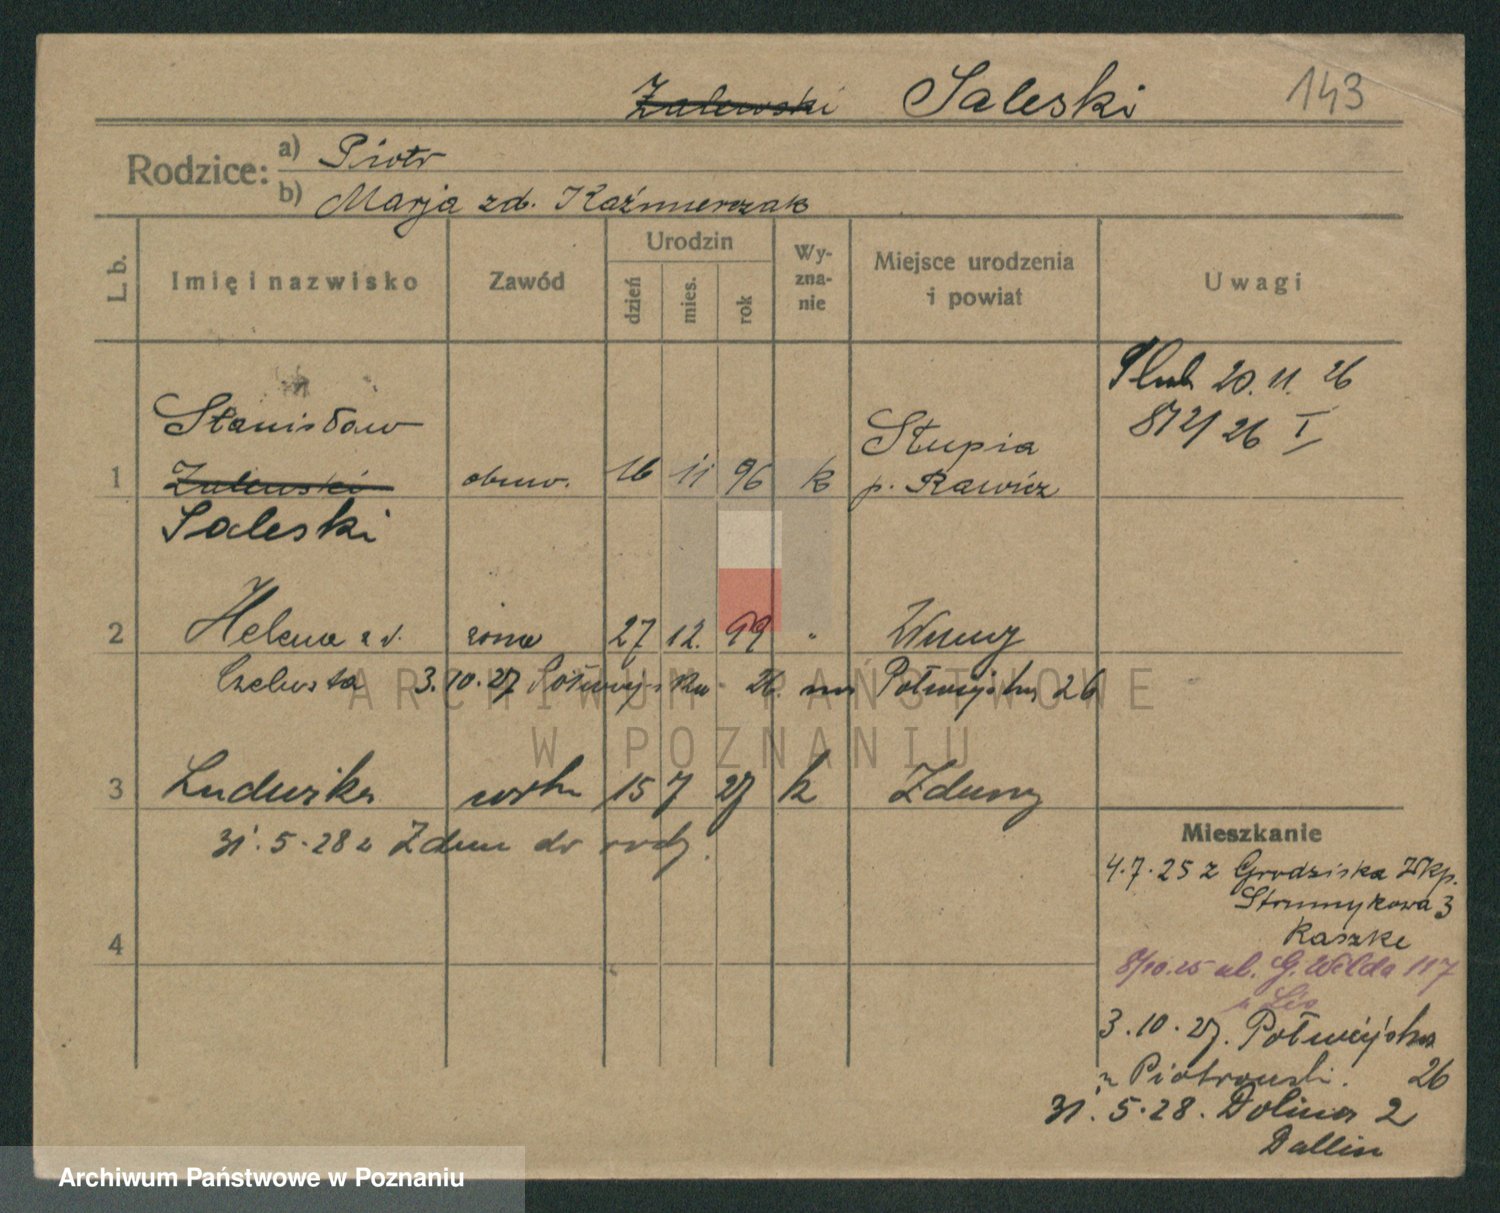 Zalewski Saleski 143
Rodzice: a) Piotr
b) Marja zd. Kaźmierczak
L. b. Imię i nazwisko Zawód Urodzin dzień mies. rok Wy-zna-nie Miejsce urodzenia i powiat Uwagi
Ślub 20.11.26
872/26 I
Stanisław
1 Zalewski obuw. 16 11 96 k Słupia p. Rawicz
Saleski
2 Helena zd. żona 27 12. 99 " Zduny
Czelusta 3.10.27 Półwiejska 26. Półwiejska 26
3 Ludwika 15 7 27 k Zduny
31.5-28 z Zdun do rodz.
4
Mieszkanie
4.7.25 z Grodziska Wlkp.
Strumykowa 3
Kaszke
8/10.25 ul. G. Wilda 117
u Lis
3.10.27. Półwiejska
u Piotrowski. 26
31.5-28. Dolina 2
Dallin
ARCHIWUM PAŃSTWOWE
W POZNANIU
Archiwum Państwowe w Poznaniu